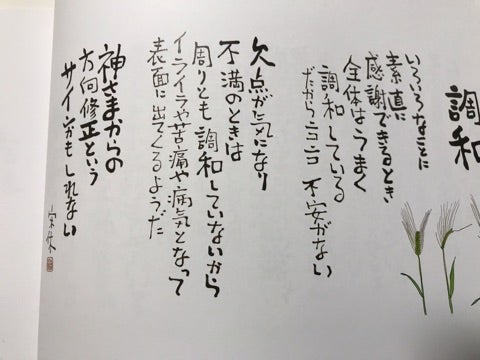 調和
いろいろなことに
素直に
感謝できるとき
全体はうまく
調和している
だからニコニコ 不安がない
欠点が気になり
不満のときは
周りとも調和していないから
イライラや苦痛や病気となって
表面に出てくるようだ
神さまからの
方向修正という
サインかもしれない